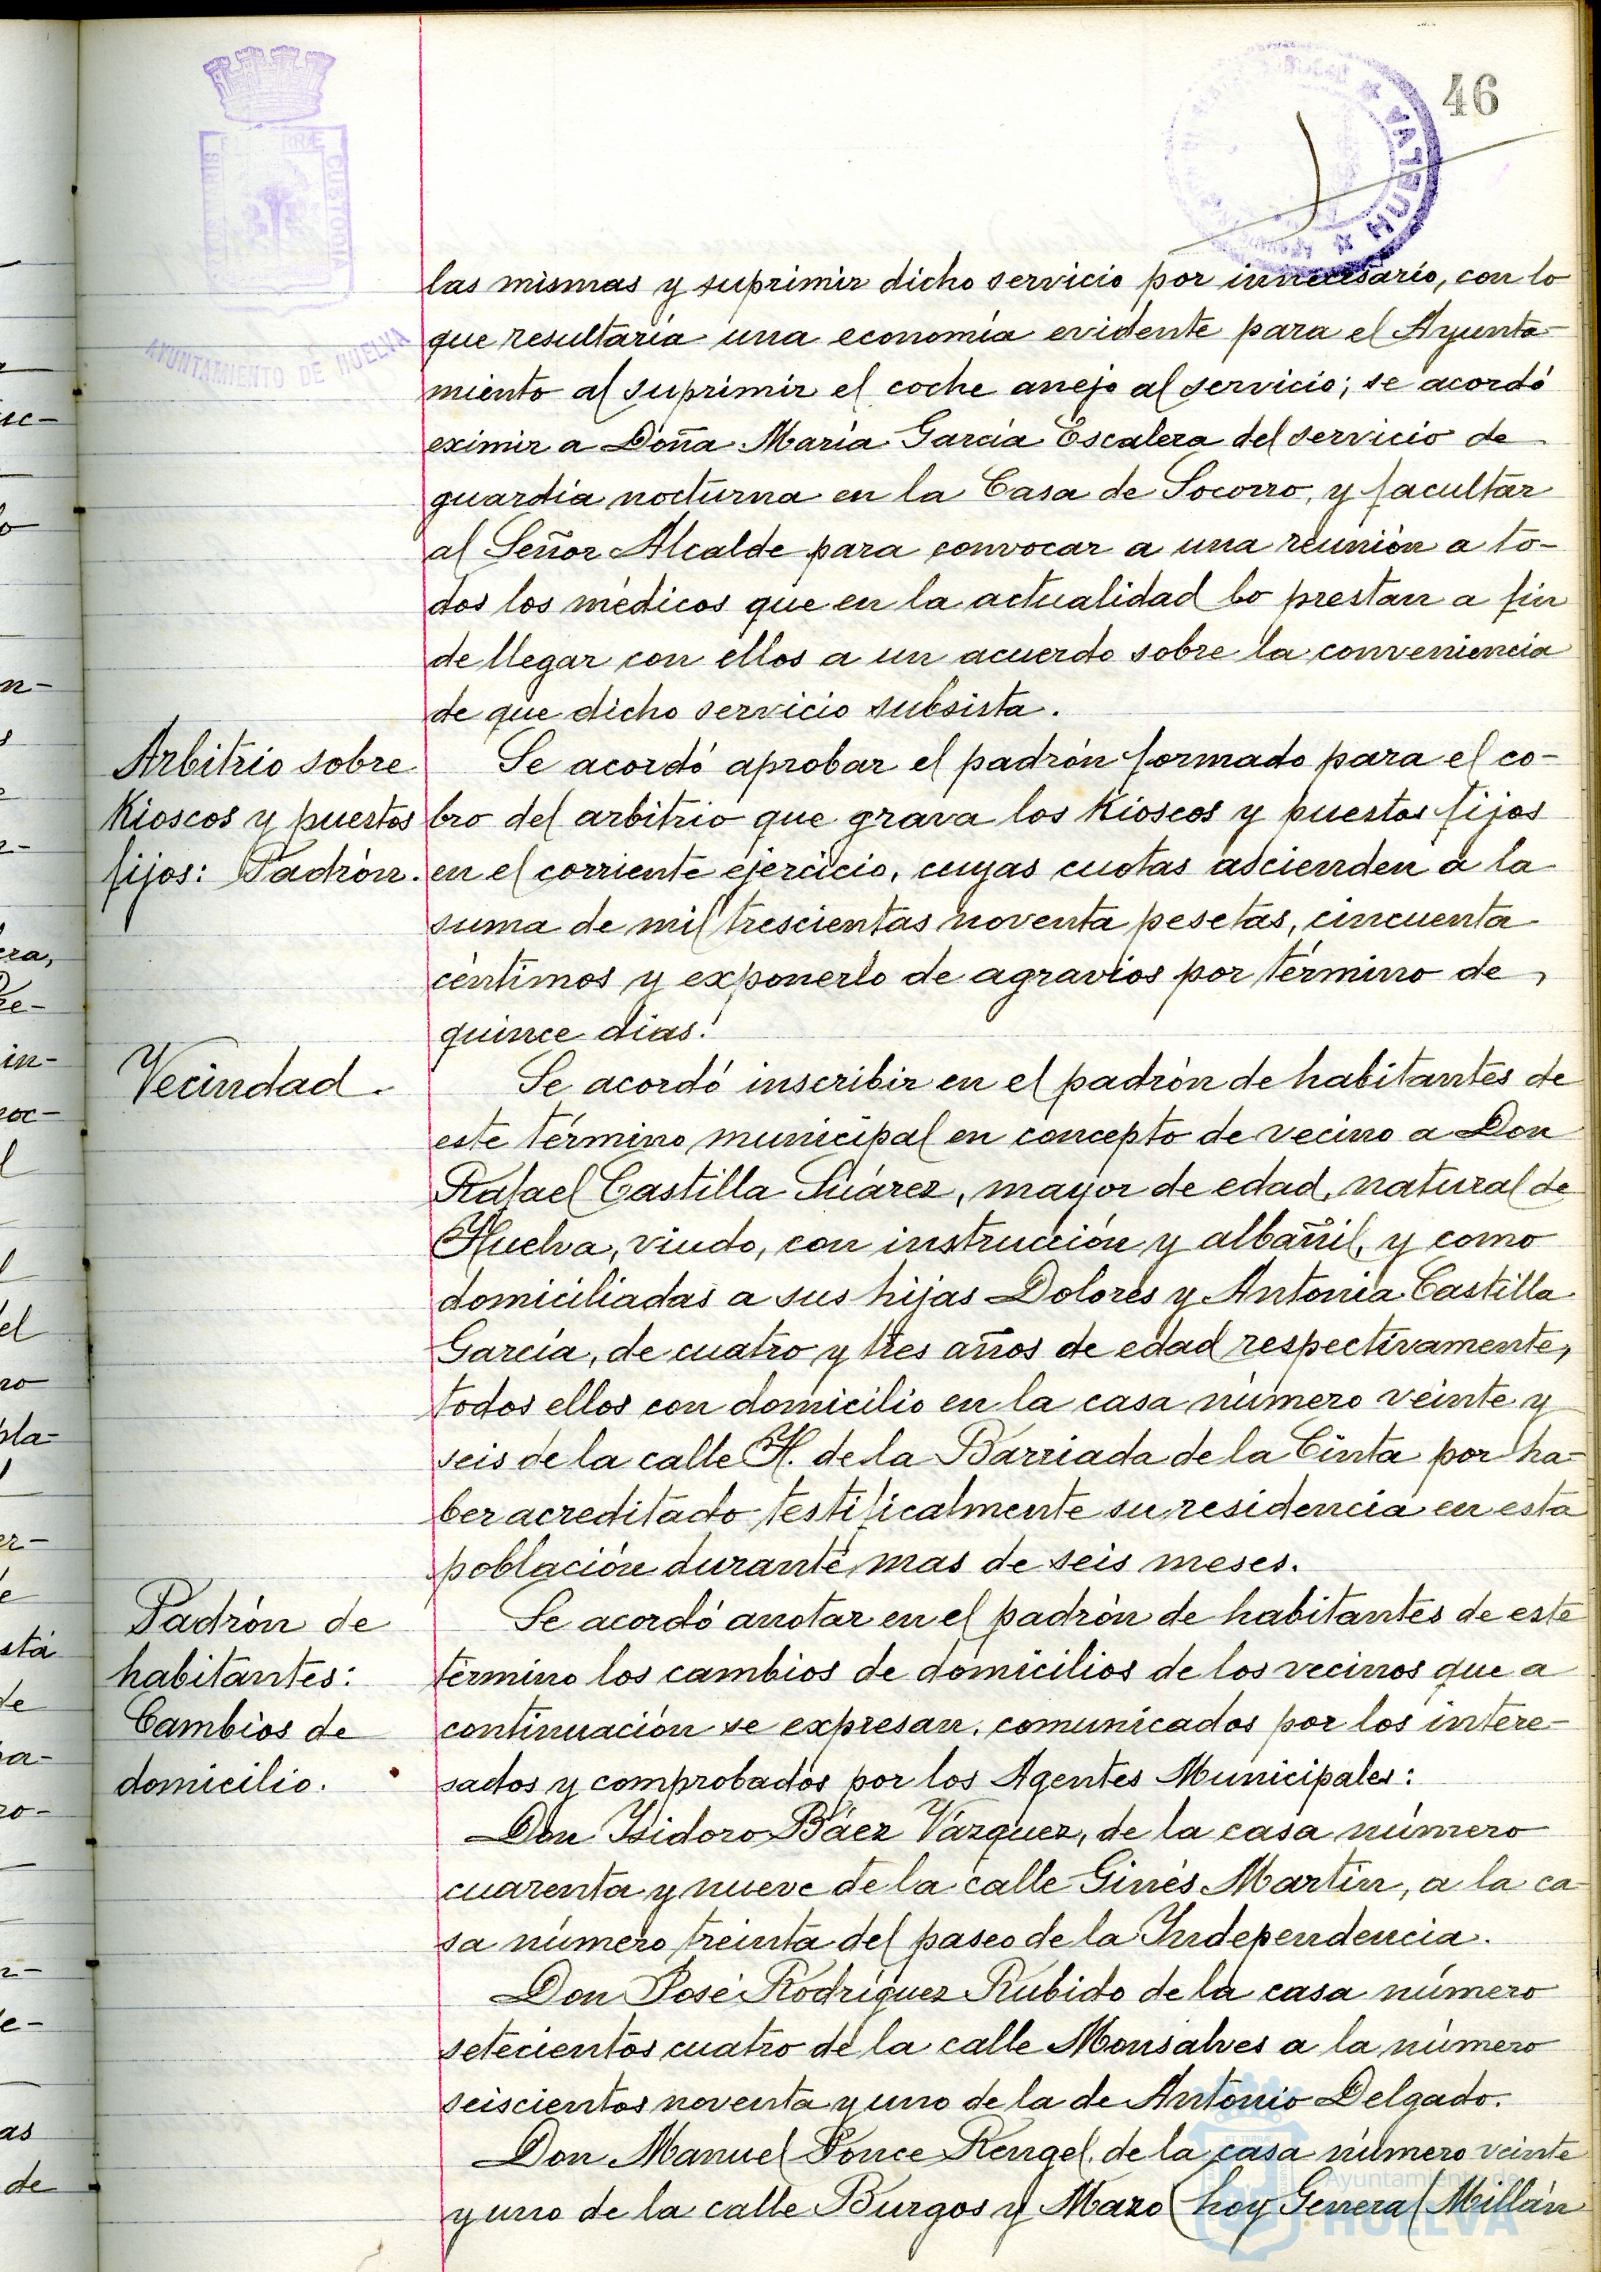 46
HUELVA
AYUNTAMIENTO DE HUELVA
las mismas y suprimir dicho servicio por innecesario, con lo
que resultaría una economía evidente para el Ayunta-
miento al suprimir el coche anejo al servicio; se acordó
eximir a Doña María García Escalera del servicio de
guardia nocturna en la Casa de Socorro, y facultar
al Señor Alcalde para convocar a una reunión a to-
dos los médicos que en la actualidad lo prestan a fin
de llegar con ellos a un acuerdo sobre la conveniencia
de que dicho servicio subsista.
Arbitrio sobre
Kioscos y puestos
fijos: Padrón.
Se acordó aprobar el padrón formado para el co-
bro del arbitrio que grava los Kioscos y puestos fijos
en el corriente ejercicio, cuyas cuotas ascienden a la
suma de mil trescientas noventa pesetas, cincuenta
céntimos y exponerlo de agravios por término de
quince dias.
Vecindad.
Se acordó inscribir en el padrón de habitantes de
este término municipal en concepto de vecino a Don
Rafael Castilla Suárez, mayor de edad, natural de
Huelva, viudo, con instrucción y albañil, y como
domiciliadas a sus hijas Dolores y Antonia Castilla
García, de cuatro y tres años de edad respectivamente,
todos ellos con domicilio en la casa número veinte y
seis de la calle H. de la Barriada de la Cinta por ha-
ber acreditado testificalmente su residencia en esta
población durante mas de seis meses.
Padrón de
habitantes:
Cambios de
domicilio.
Se acordó anotar en el padrón de habitantes de este
término los cambios de domicilios de los vecinos que a
continuación se expresan, comunicados por los intere-
sados y comprobados por los Agentes Municipales:
Don Isidoro Báez Vázquez, de la casa número
cuarenta y nueve de la calle Ginés Martín, a la ca-
sa número treinta del paseo de la Independencia.
Don José Rodríguez Rubido de la casa número
setecientos cuatro de la calle Monsalves a la número
seiscientos noventa y uno de la de Antonio Delgado.
Don Manuel Ponce Rengel, de la casa número veinte
y uno de la calle Burgos y Mazo (hoy General Millán
Ayuntamiento de
HUELVA